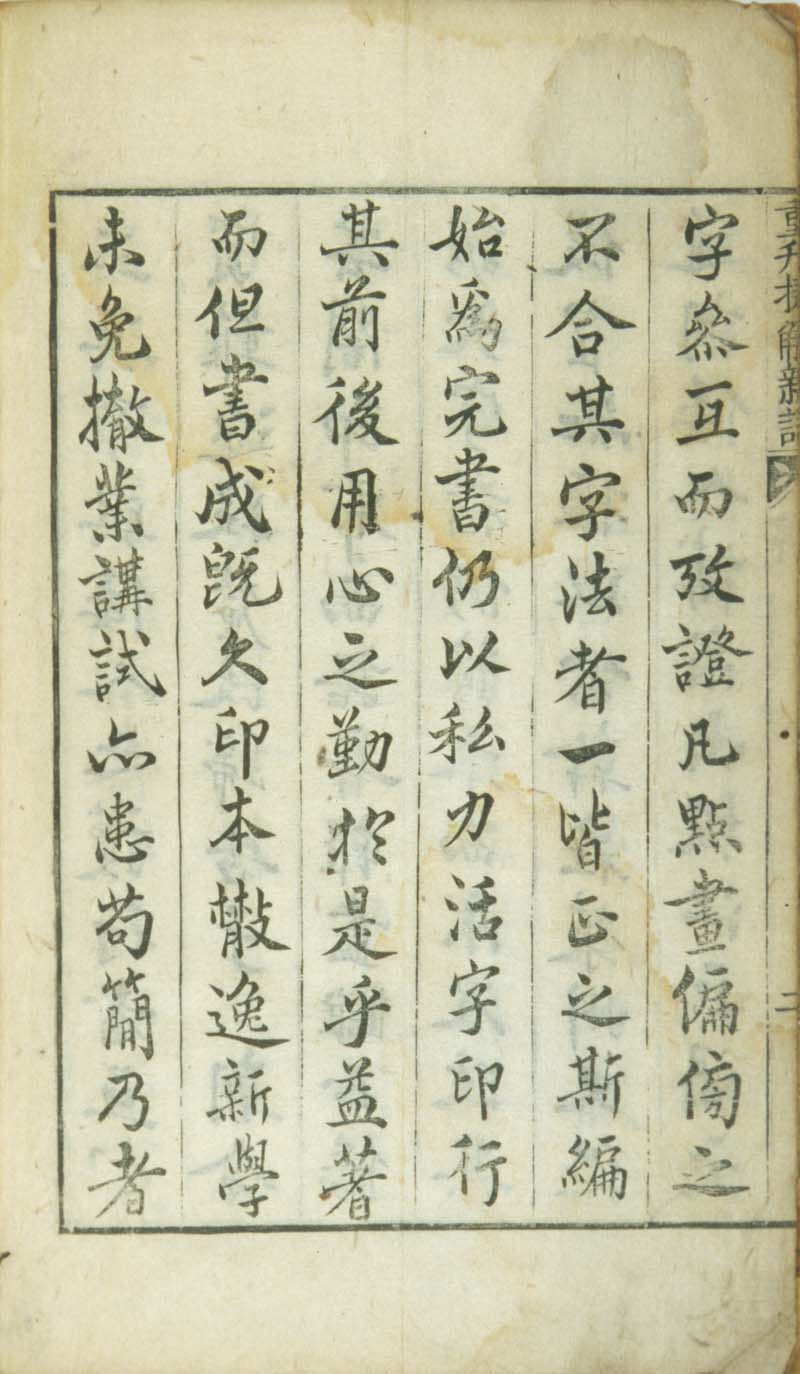 重刊捷解新語
二
字叅互而攷證凡點畫偏傍之
不合其字法者一皆正之斯編
始爲完書仍以私力活字印行
其前後用心之勤於是乎益著
而但書成旣久印本散逸新學
未免撤業講試亦患苟簡乃者